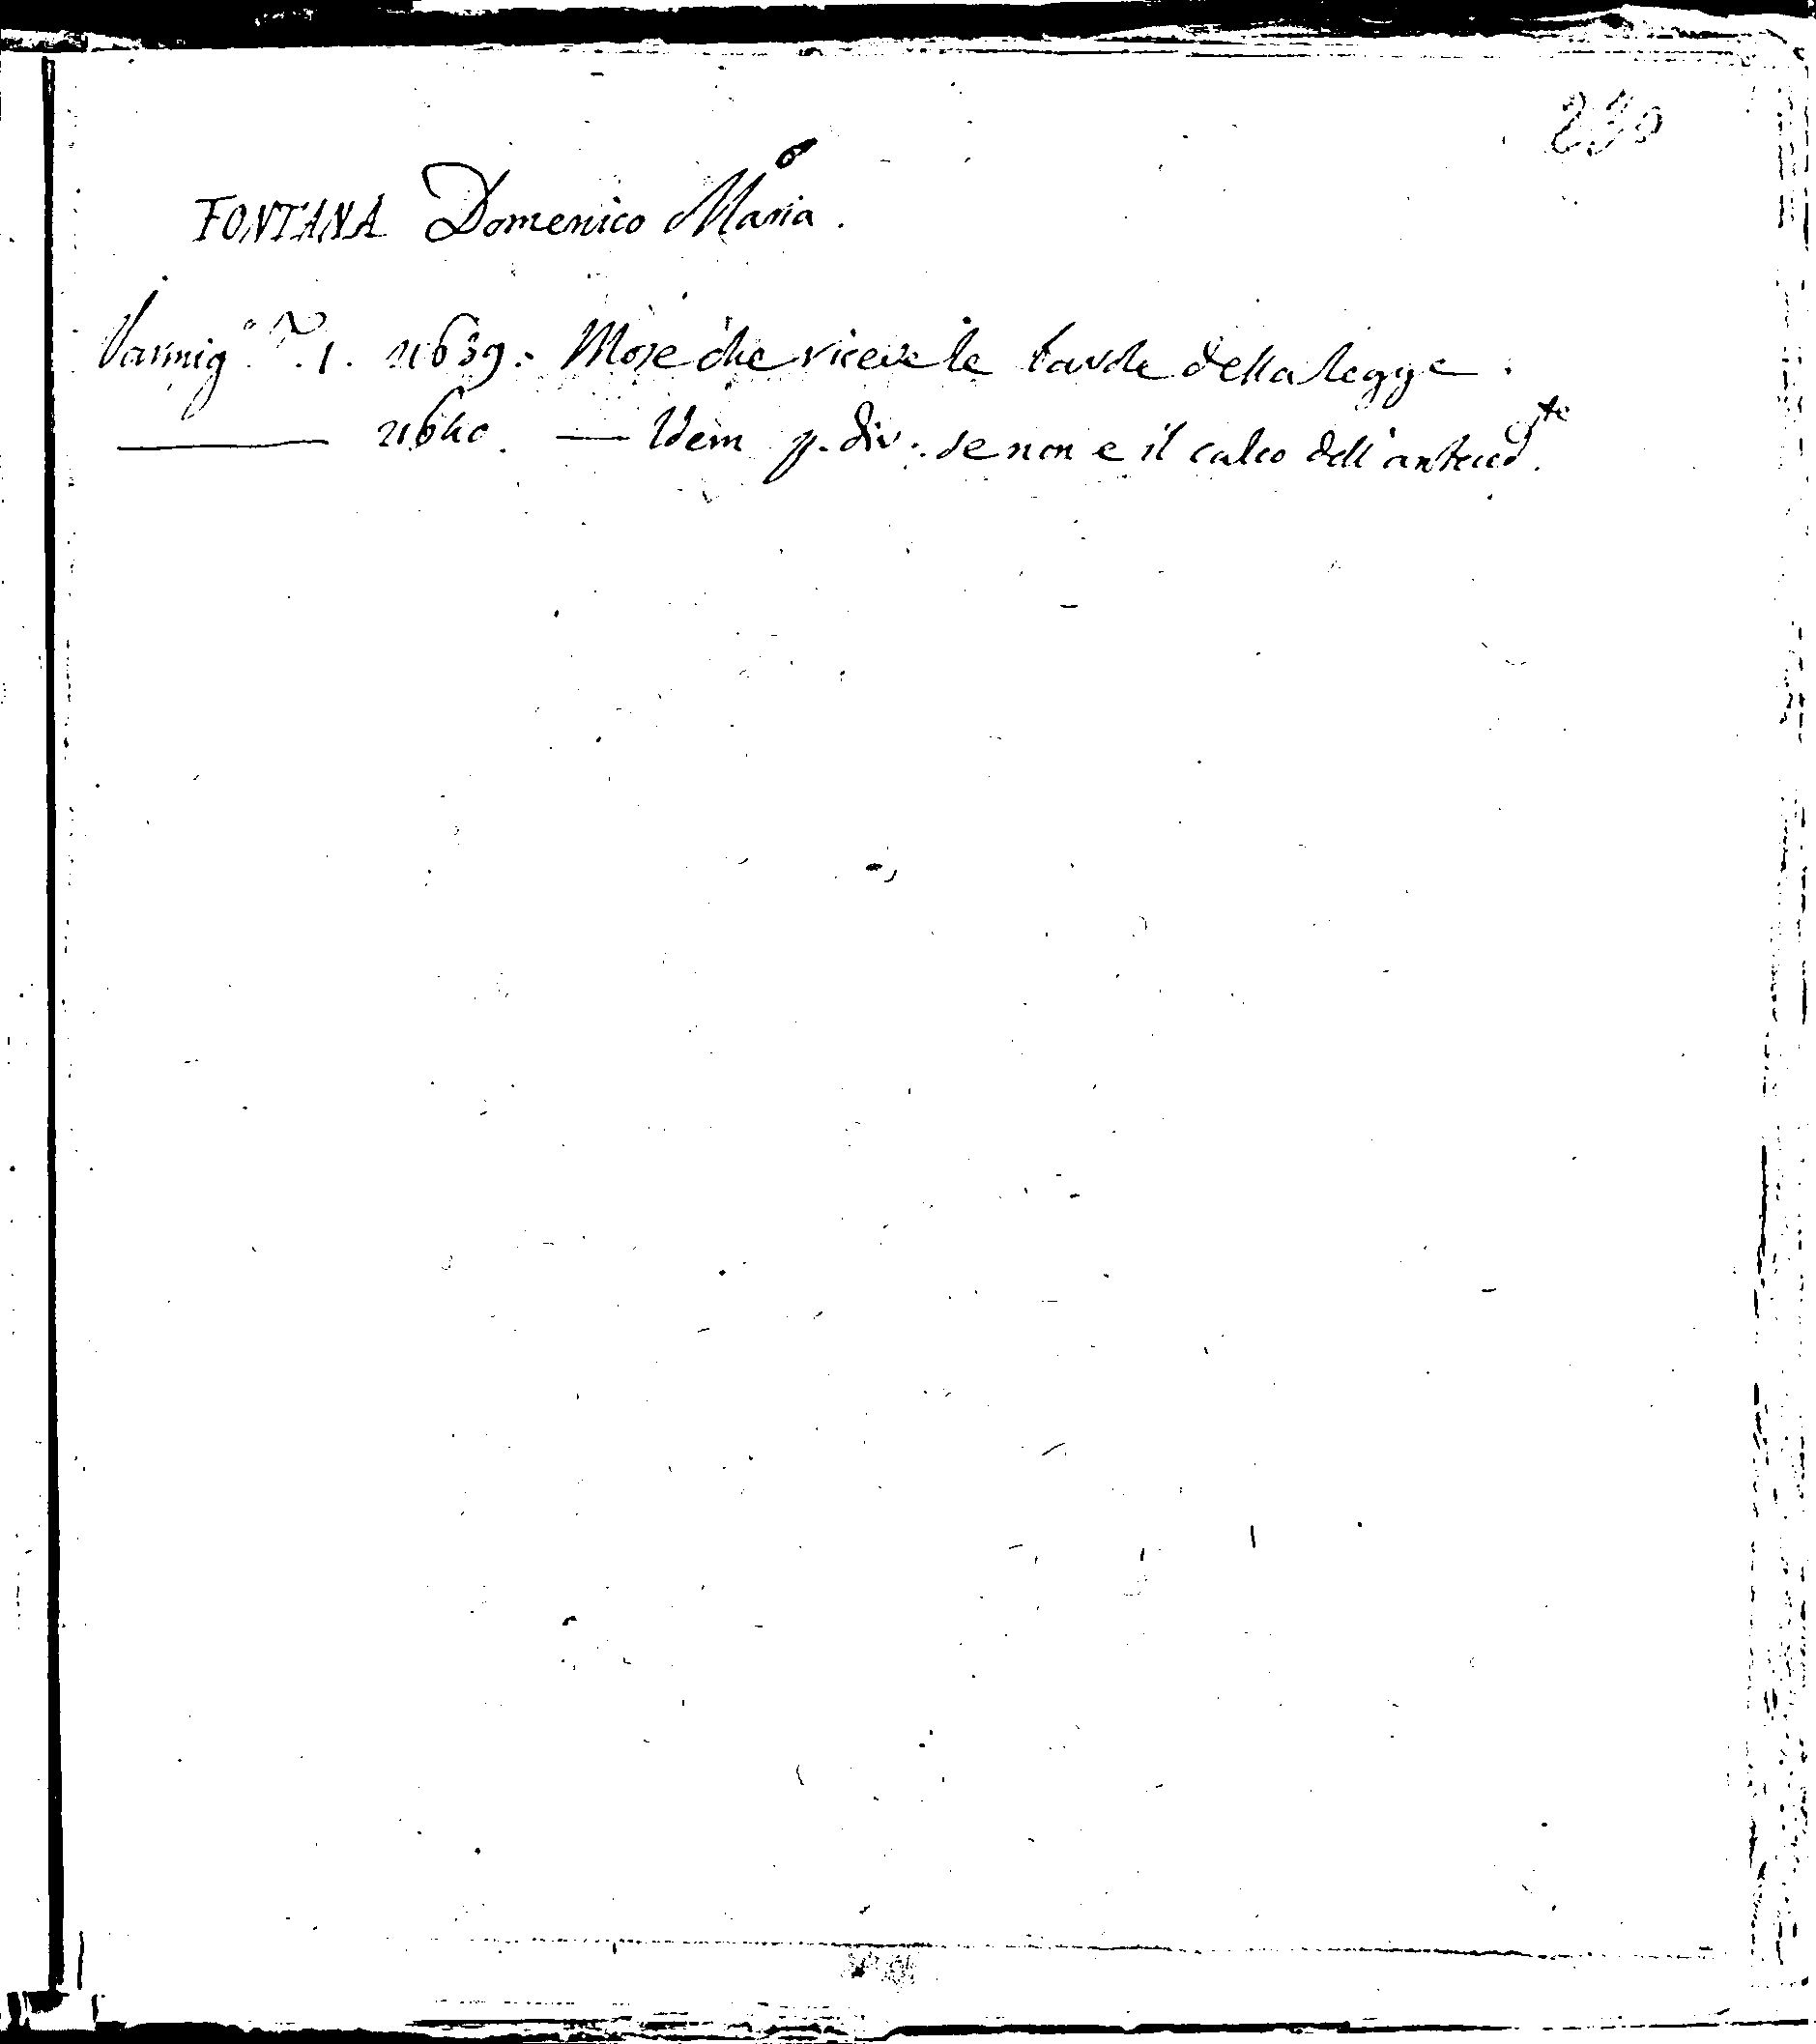 230
FONTANA Domenico Maria.
Parmig.º N. 1. 21639. Mose che riceve le tavole della legge.
——— 21640. — Idem p. div. se non e il calco dell'anteced.te